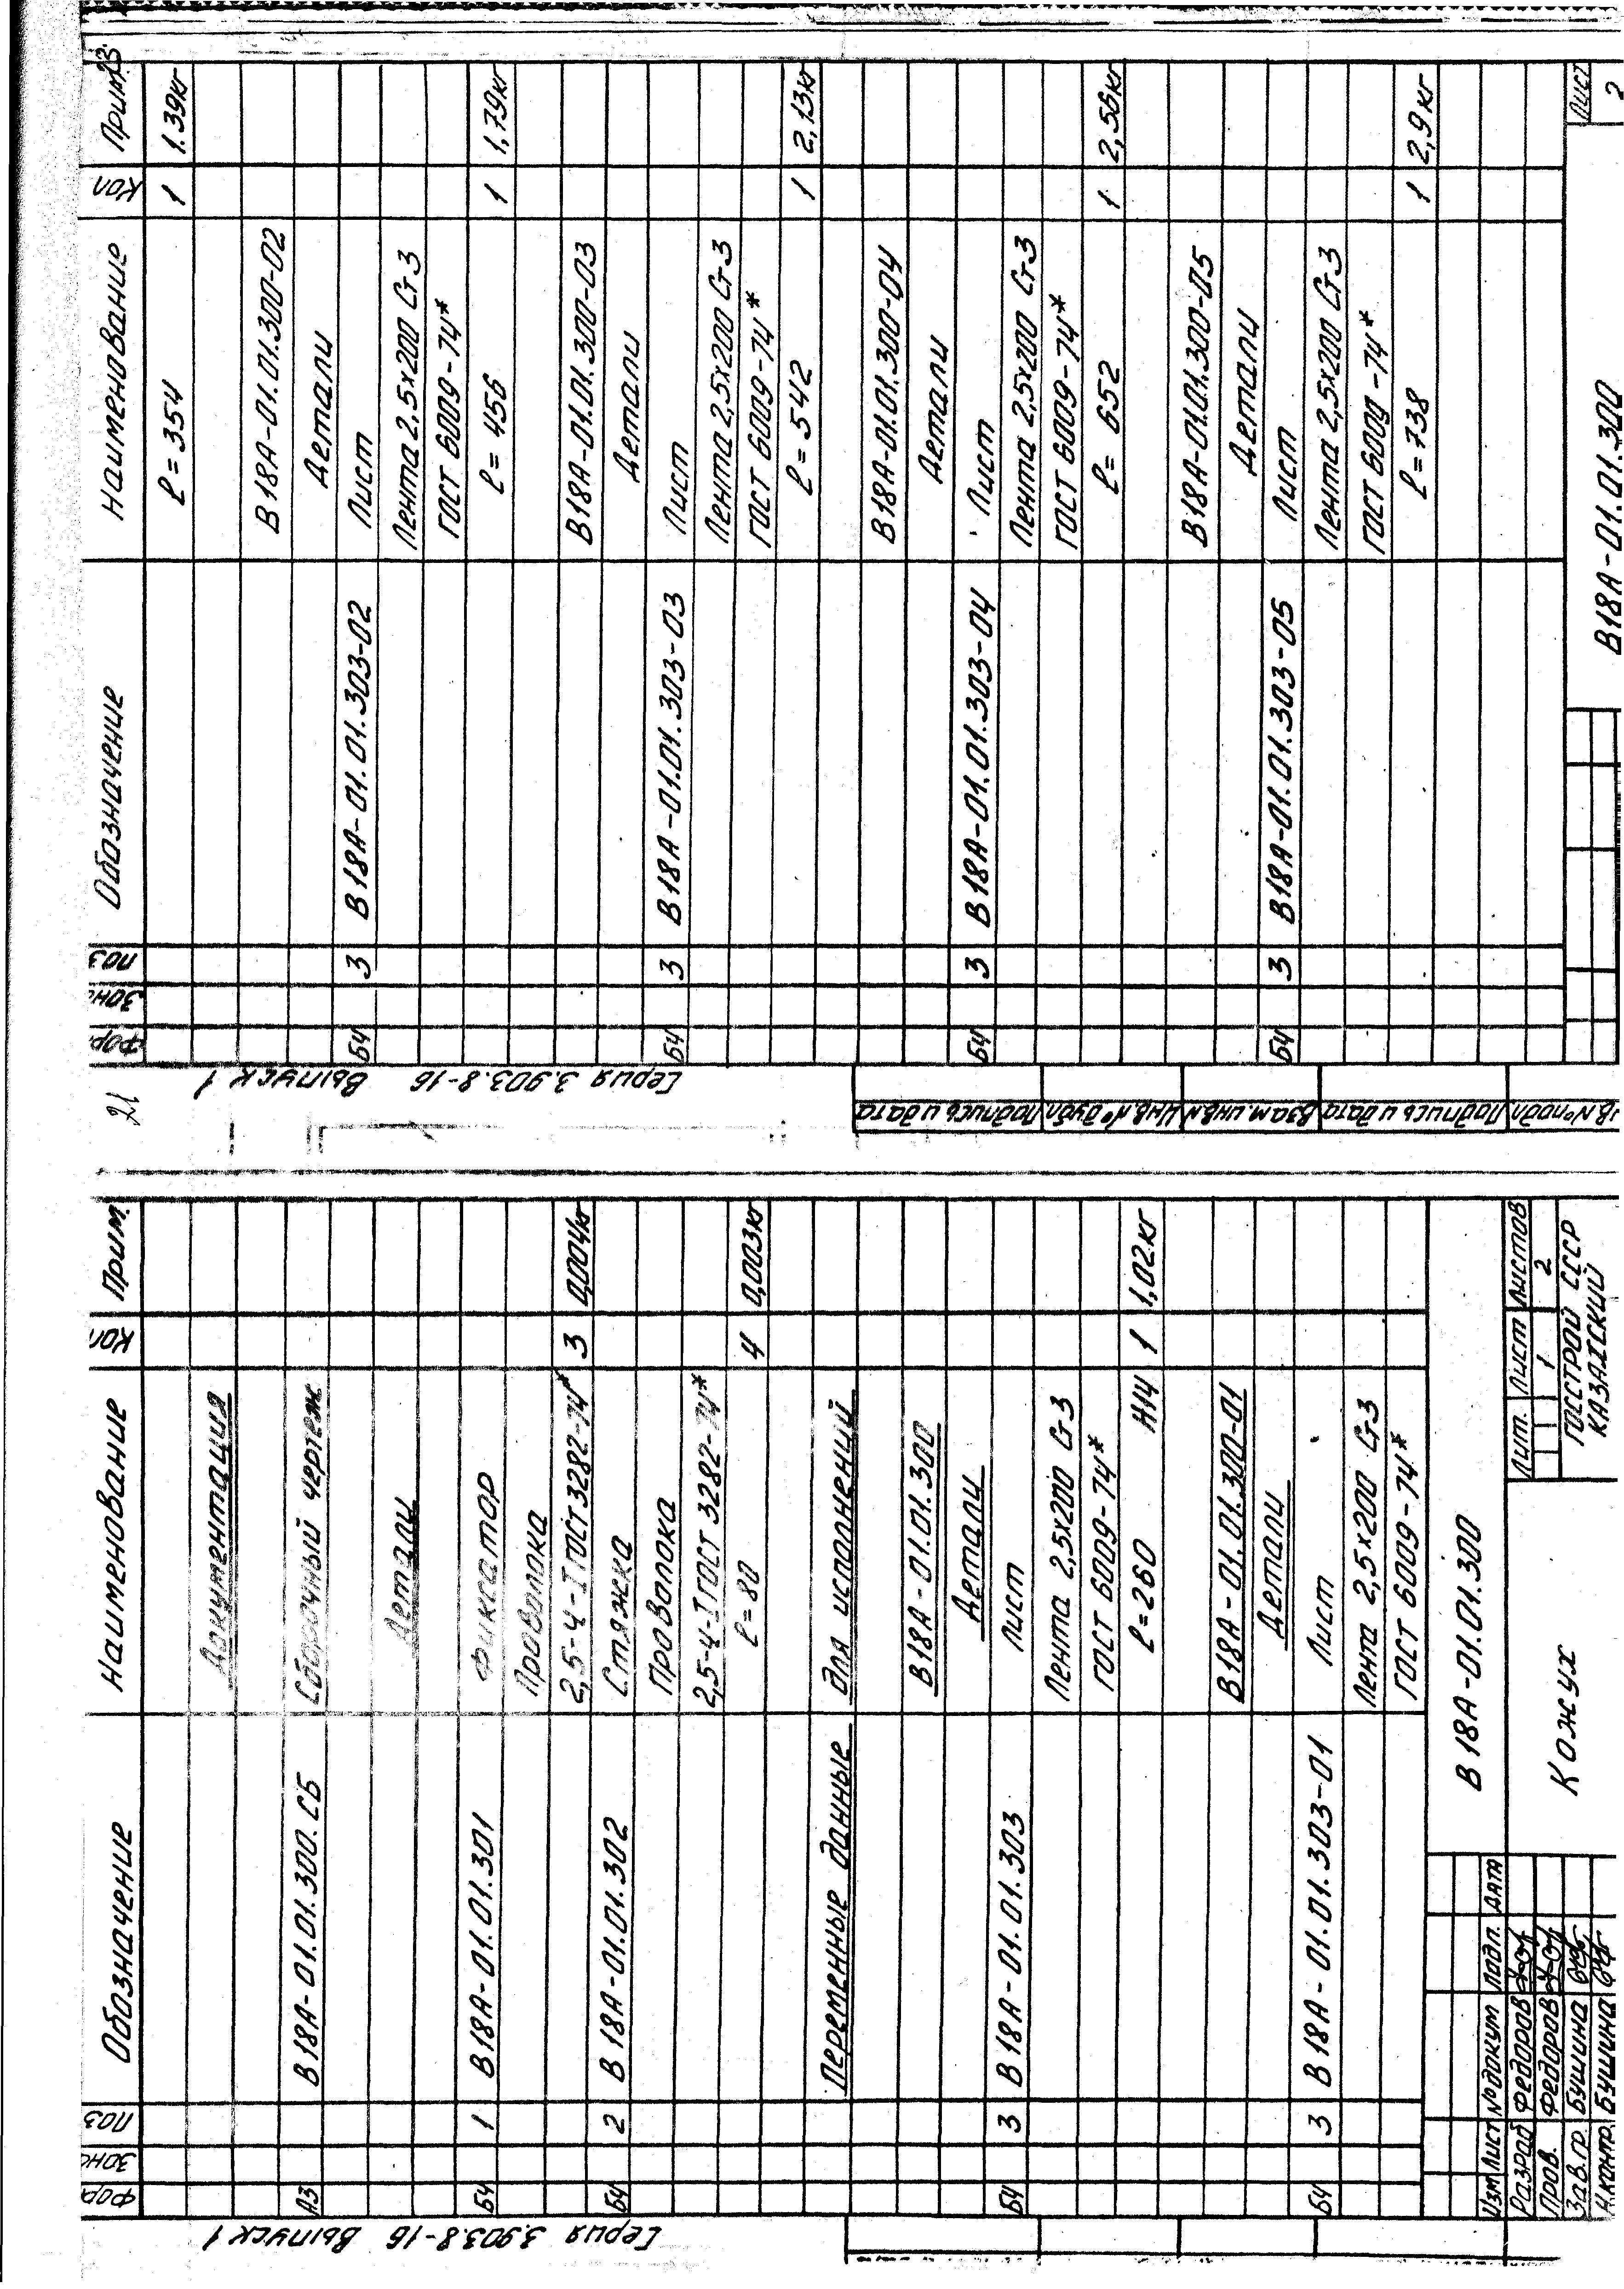 Серия 3.903.8-16 Выпуск 1
Обозначение Наименование Кол Прим.
Поз
Документация
А3 В18А-01.01.300.СБ Сборочный чертеж
Детали
БЧ 1 В18А-01.01.301 Фиксатор
Проволока
2,5-4-I ГОСТ 3282-74* 3 0,004кг
БЧ 2 В18А-01.01.302 Стяжка
Проволока
2,5-4-I ГОСТ 3282-74*
ℓ=80 4 0,003кг
Переменные данные для исполнений
В18А-01.01.300
Детали
БЧ 3 В18А-01.01.303 Лист
Лента 2,5х200 Ст3
ГОСТ 6009-74*
ℓ=260 Н14 1 1,02кг
В18А-01.01.300-01
Детали
БЧ 3 В18А-01.01.303-01 Лист
Лента 2,5х200 Ст3
ГОСТ 6009-74*
В18А-01.01.300
Изм Лист № докум Подп. Дата
Разраб Федоров
Пров. Федоров
Зав.гр. Бушина
Н.контр. Бушина
Кожух
Лит. Лист Листов
1 2
ГОССТРОЙ СССР
КАЗАДСКИЙ
21
Серия 3.903.8-16 Выпуск 1
Обозначение Наименование Кол Прим.
Поз
23
ℓ=354 1 1.39кг
В18А-01.01.300-02
Детали
БЧ 3 В18А-01.01.303-02 Лист
Лента 2,5х200 Ст3
ГОСТ 6009-74*
ℓ=456 1 1,79кг
В18А-01.01.300-03
Детали
БЧ 3 В18А-01.01.303-03 Лист
Лента 2,5х200 Ст3
ГОСТ 6009-74*
ℓ=542 1 2,13кг
В18А-01.01.300-04
Детали
БЧ 3 В18А-01.01.303-04 Лист
Лента 2,5х200 Ст3
ГОСТ 6009-74*
ℓ=652 1 2,56кг
В18А-01.01.300-05
Детали
БЧ 3 В18А-01.01.303-05 Лист
Лента 2,5х200 Ст3
ГОСТ 6009-74*
ℓ=738 1 2,9кг
В18А-01.01.300
Лист
2
№ подл Подпись и дата Взам.инв.№ Инв.№ дубл Подпись и дата